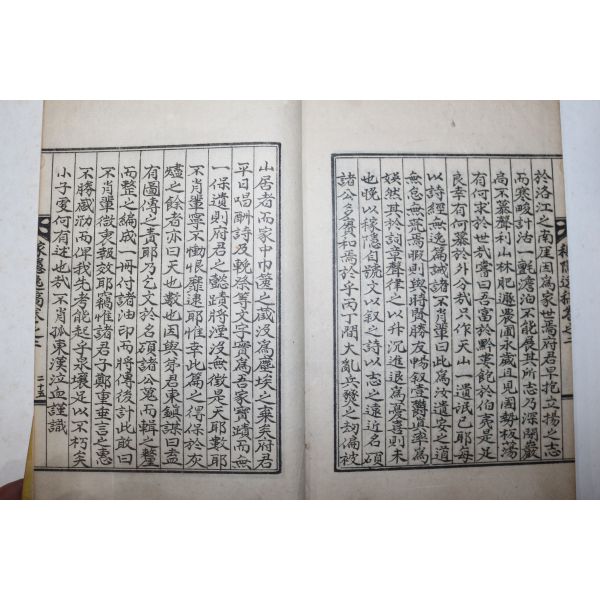 於洛江之南崖因爲家世焉府君早抱立揚之志
而寒暖計活一氈澹泊不能展其所志乃深閉嚴
高不慕聲利山林肥遯畏園永歲且見國勢板蕩
有何求於世哉嘗曰吾富於黔婁飽於伯夷是足
良幸有何慕於外令哉只作天山一遺氓已耶每
以詩經無逸篇誡諸子若孫曰此爲汝遺安之道
無怠無荒焉暇則與時賢勝友暢叙壹觴眞率爲
娛然其於詞章聲律之以升沉進退爲憂喜則未
也晩以稼隱自號文以叙之詩以志之遠近名碩
諸公多賡和焉於乎丙丁間大亂兵燹之刼偏被
山居者而家中巾篋之藏沒爲塵埃之棄矣府君
平日唱酬詩及輓祭等文字實爲吾家寶蹟而無
一保遺則府君之懿蹟將湮沒無徵是天耶數耶
不肖輩寧不慟恨靡逮耶惟幸此篇之得保於灰
燼之餘者亦曰天也數也因與茅君東鎭謀曰盍
有圖傳之責耶乃乞文於名碩諸公蒐而輯之釐
而整之編成一冊付諸油印而將傳後計此敢曰
不肖輩微衷報效耶竊惟諸君子鄭重垂言之惠
不勝感泐而俾我先考能起乎泉壤足以不朽矣
小子爰何有述也哉不肖孤東漢泣血謹識
稼隱逸稿卷之二
二十五